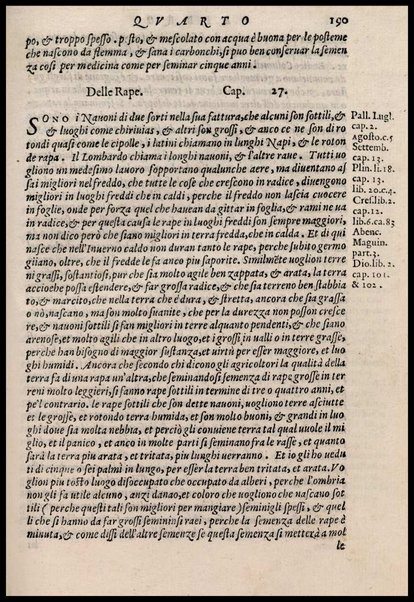 QVARTO 190
po, & troppo spesso. p sto, & mescolato con acqua è buona per le posteme
che nascono da flemma, & sana i carbonchi, si puo ben conseruar la semen
za cosi per medicina come per seminar cinque anni.
Delle Rape. Cap. 27.
SONO i Nauoni di due sorti nella sua fattura, che alcuni son sottili, &
lunghi come chiriuias, & altri son grossi, & anco ce ne son di ro
tondi quasi come le cipolle, i latini chiamano in lunghi Napi, & le roton
de rapa. Il Lombardo chiama i longhi nauoni, & l'altre raue. Tutti uo
gliono un medesimo lauoro sopportano qualunche aere, ma diuentano as
sai migliori nel freddo, che tutte le cose che crescono in radice, diuengono
migliori in luoghi freddi che in caldi, perche il freddo non lascia cuocere
in foglie, onde per forza quel che hauean da gittar in foglia, & rami ne ua
in radice, & per questa causa le rape in luoghi freddi son sempre maggiori,
ma non dico però che siano migliori in terra fredda, che in calda. Et di qui
nasce che nell'Inuerno caldo non duran tanto le rape, perche subito germo
gliano, oltre, che il fredde le fa anco piu saporite. Similmẽte uoglion terre
ni grassi, sostantiosi, pur che sia molto agile ben zappata, & arata, la terra
accioche possa estendere, & far grossa radice, & che sia terreno ben stabbia
to, & marcito, che nella terra che è dura, & stretta, ancora che sia grassa
o nõ, nascano, ma son molto suanite, che per la durezza non posson cresce
re, & nauoni sottili si fan migliori in terre alquanto pendenti, & che siano
arenose, et molto agili che in altro luogo, et i grossi in ualli o in terre grasse,
perche han bisogno di maggior sustanza, et uirtù per esser maggiore, et luo
ghi humidi. Ancora che secondo chi dicono gli agricoltori la qualità della
terra fa di una rapa un'altra, che seminandosi semenza di rape grosse in ter
reni molto leggieri, si fanno rape sottili in termine di tre o quattro anni, et
pe'l contrario. le rape sottili che son dette nauoni, uogliono terre asciutte
et le grosse, et rotondo terra humida, et son molto buoni, & grandi in luo
ghi doue sia molta nebbia, et perciò gli conuiene terra tal qual uuole il mi
glio, et il panico, et anco in molte parti si seminan fra le rasse, et quanto
sarà la terra piu arata, et tritata, piu lunghi uerranno. Et io gli ho uedu
ti di cinque o sei palmi in lungo, per esser la terra ben tritata, et arata. Vo
glion piu tosto luogo disoccupato che occupato da alberi, perche l'ombria
non gli fa utile alcuno, anzi danno, et coloro che uogliono che nascano sot
tili (perche questi tali son migliori per mangiare) seminigli spessi, & quel
li che si hanno da far grossi seminin si raei, perche la semenza delle rape è
minuta, & come dissi dell'altre semenze se questa semenza si metterà a mol
le
Pall. Lugl.
cap. 2.
Agosto. c. 5
Settemb.
cap. 13.
Plin. li. 18.
cap. 13.
lib. 20. c. 4.
Cres. lib. 2.
cap. 12.
lib. 6. ca. 82
Abenc.
Maguin.
part. 3.
Dio. lib. 2.
cap. 101.
& 102.